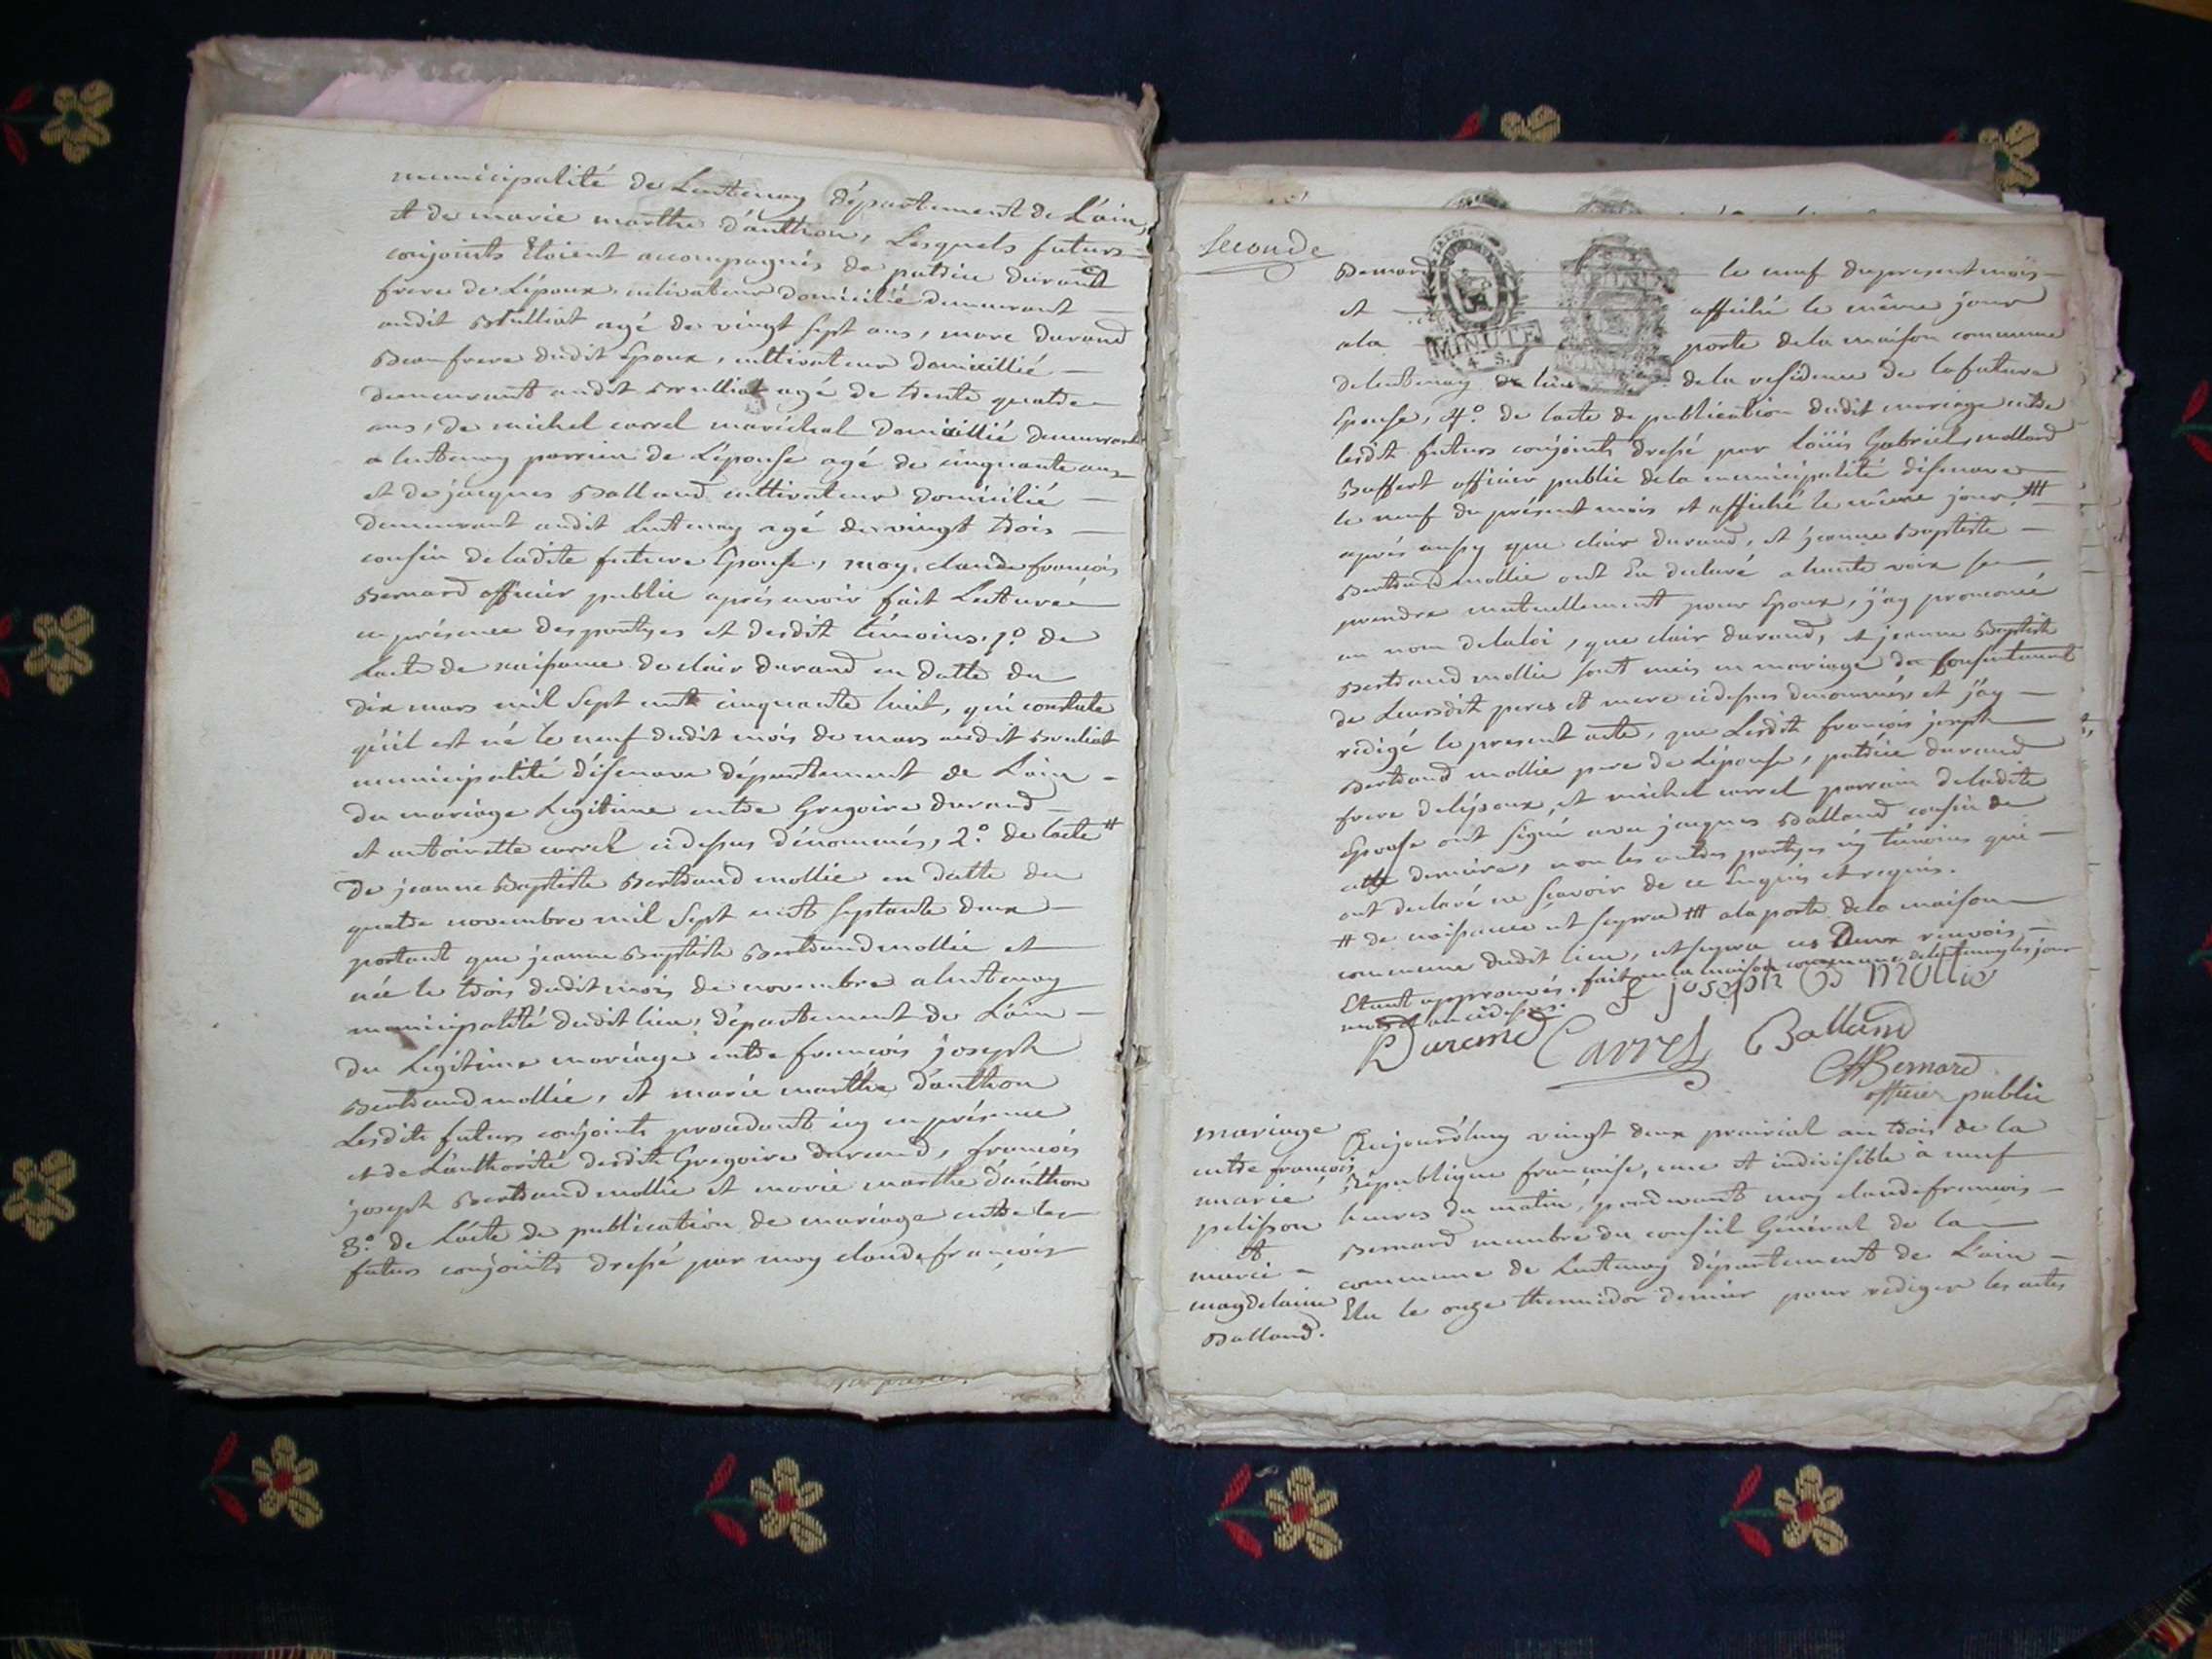 municipalité de Lentenay département de L'ain,
et de marie marthe d'anthon, Lesquels futurs
conjoints Etoient accompagnés de patrice durand
frere de L'époux cultivateur domicilié demeurant
audit Brulliat agé de vingt sept ans, marc durand
Beaufrere dudit Epoux, cultivateur domicillié
demeurant audit Brulliat agé de trente quatre
ans, de michel carrel maréchal domicillié demeurant
a lentenay parrein de L'épouse agé de cinquante ans
et de jacques Balland cultivateur domicilié
demeurant audit Lentenay agé de vingt trois
cousin de ladite future Epouse, moy, claude françois
Bernard officier public aprés avoir fait Lecture
en présence des partyes et desdit témoins, 1º. de
L'acte de naissance de clair durand en datte du
dix mars mil sept cent cinquante huit, qui constate
qu'il est né le neuf dudit mois de mars audit Bruliat
municipalité d'isenave département de L'ain
du mariage Legitime entre Gregoire durand
et antoinette carrel cidessus dénommés, 2º. de l'acte #
de jeanne Baptiste Bertrand mollie en datte du
quatre novembre mil sept cent septante deux
portant que jeanne Baptiste Bertrand mollie et
née le trois dudit mois de novembre a lentenay
municipalité dudit lieu, département de L'ain
du Legitime mariage entre françois joseph
Bertrand mollie, et marie marthe d'anthon
Lesdits futurs conjoints procedant icy en présence
et de L'authorité desdits Gregoire durand, françois
joseph Bertrand mollie et marie marthe d'anthon
3º. de L'acte de publication de mariage entre les
futurs conjoints dressé par moy claude françois
seconde
Bernard le neuf du present mois
et affiché le même jour
a la porte de la maison commune
de lentenay de la residence de la future
Epouse, 4º. de l'acte de publication dudit mariage entre
lesdit futurs conjoints dressé par Loüis Gabriel mollard
Buffert officier public de la municipalité d'isenave
le neuf du présent mois et affiché le même jour, ###
aprés aussy que clair durand, et jeanne Baptiste
Bertrand mollie ont Eu declaré a haute voix se
prendre mutuellement pour Epoux, j'ay prononcé
au nom de la loi, que clair durand, et jeanne Baptiste
Bertrand mollie sont unis en mariage du consentement
de Leursdit peres et mere cidessus denommés et j'ay
redigé le present acte, que Lesdit françois joseph
Bertrand mollie pere de L'épouse, patrice durand
frere de l'époux, et michel carrel parrain de ladite
Epouse ont signé avec jacques Balland cousin de
cette derniere, non les autres partyes ny témoins qui
ont declaré ne sçavoir de ce Enquis et requis.
# de naissance ut supra ### a la porte de la maison
commune dudit lieu, ut supra ces Deux renvois
Etant approuvés. fait en la maison commune de lentenay les jour
mois et an cidessus.
f joseph B mollie
Durand Carrel Balland
Bernard
officier public
mariage
entre françois
marie
pelisson
et
marie
magdelaine
Balland.
Aujourd'huy vingt deux prairial an trois de la
République françoise, une et indivisible à neuf
heures du matin, pardevant moy claude françois
Bernard membre du conseil Général de la
commune de Lentenay département de L'ain
Elu le onze thermidor dernier pour rediger les actes
MINUTE
4 S.